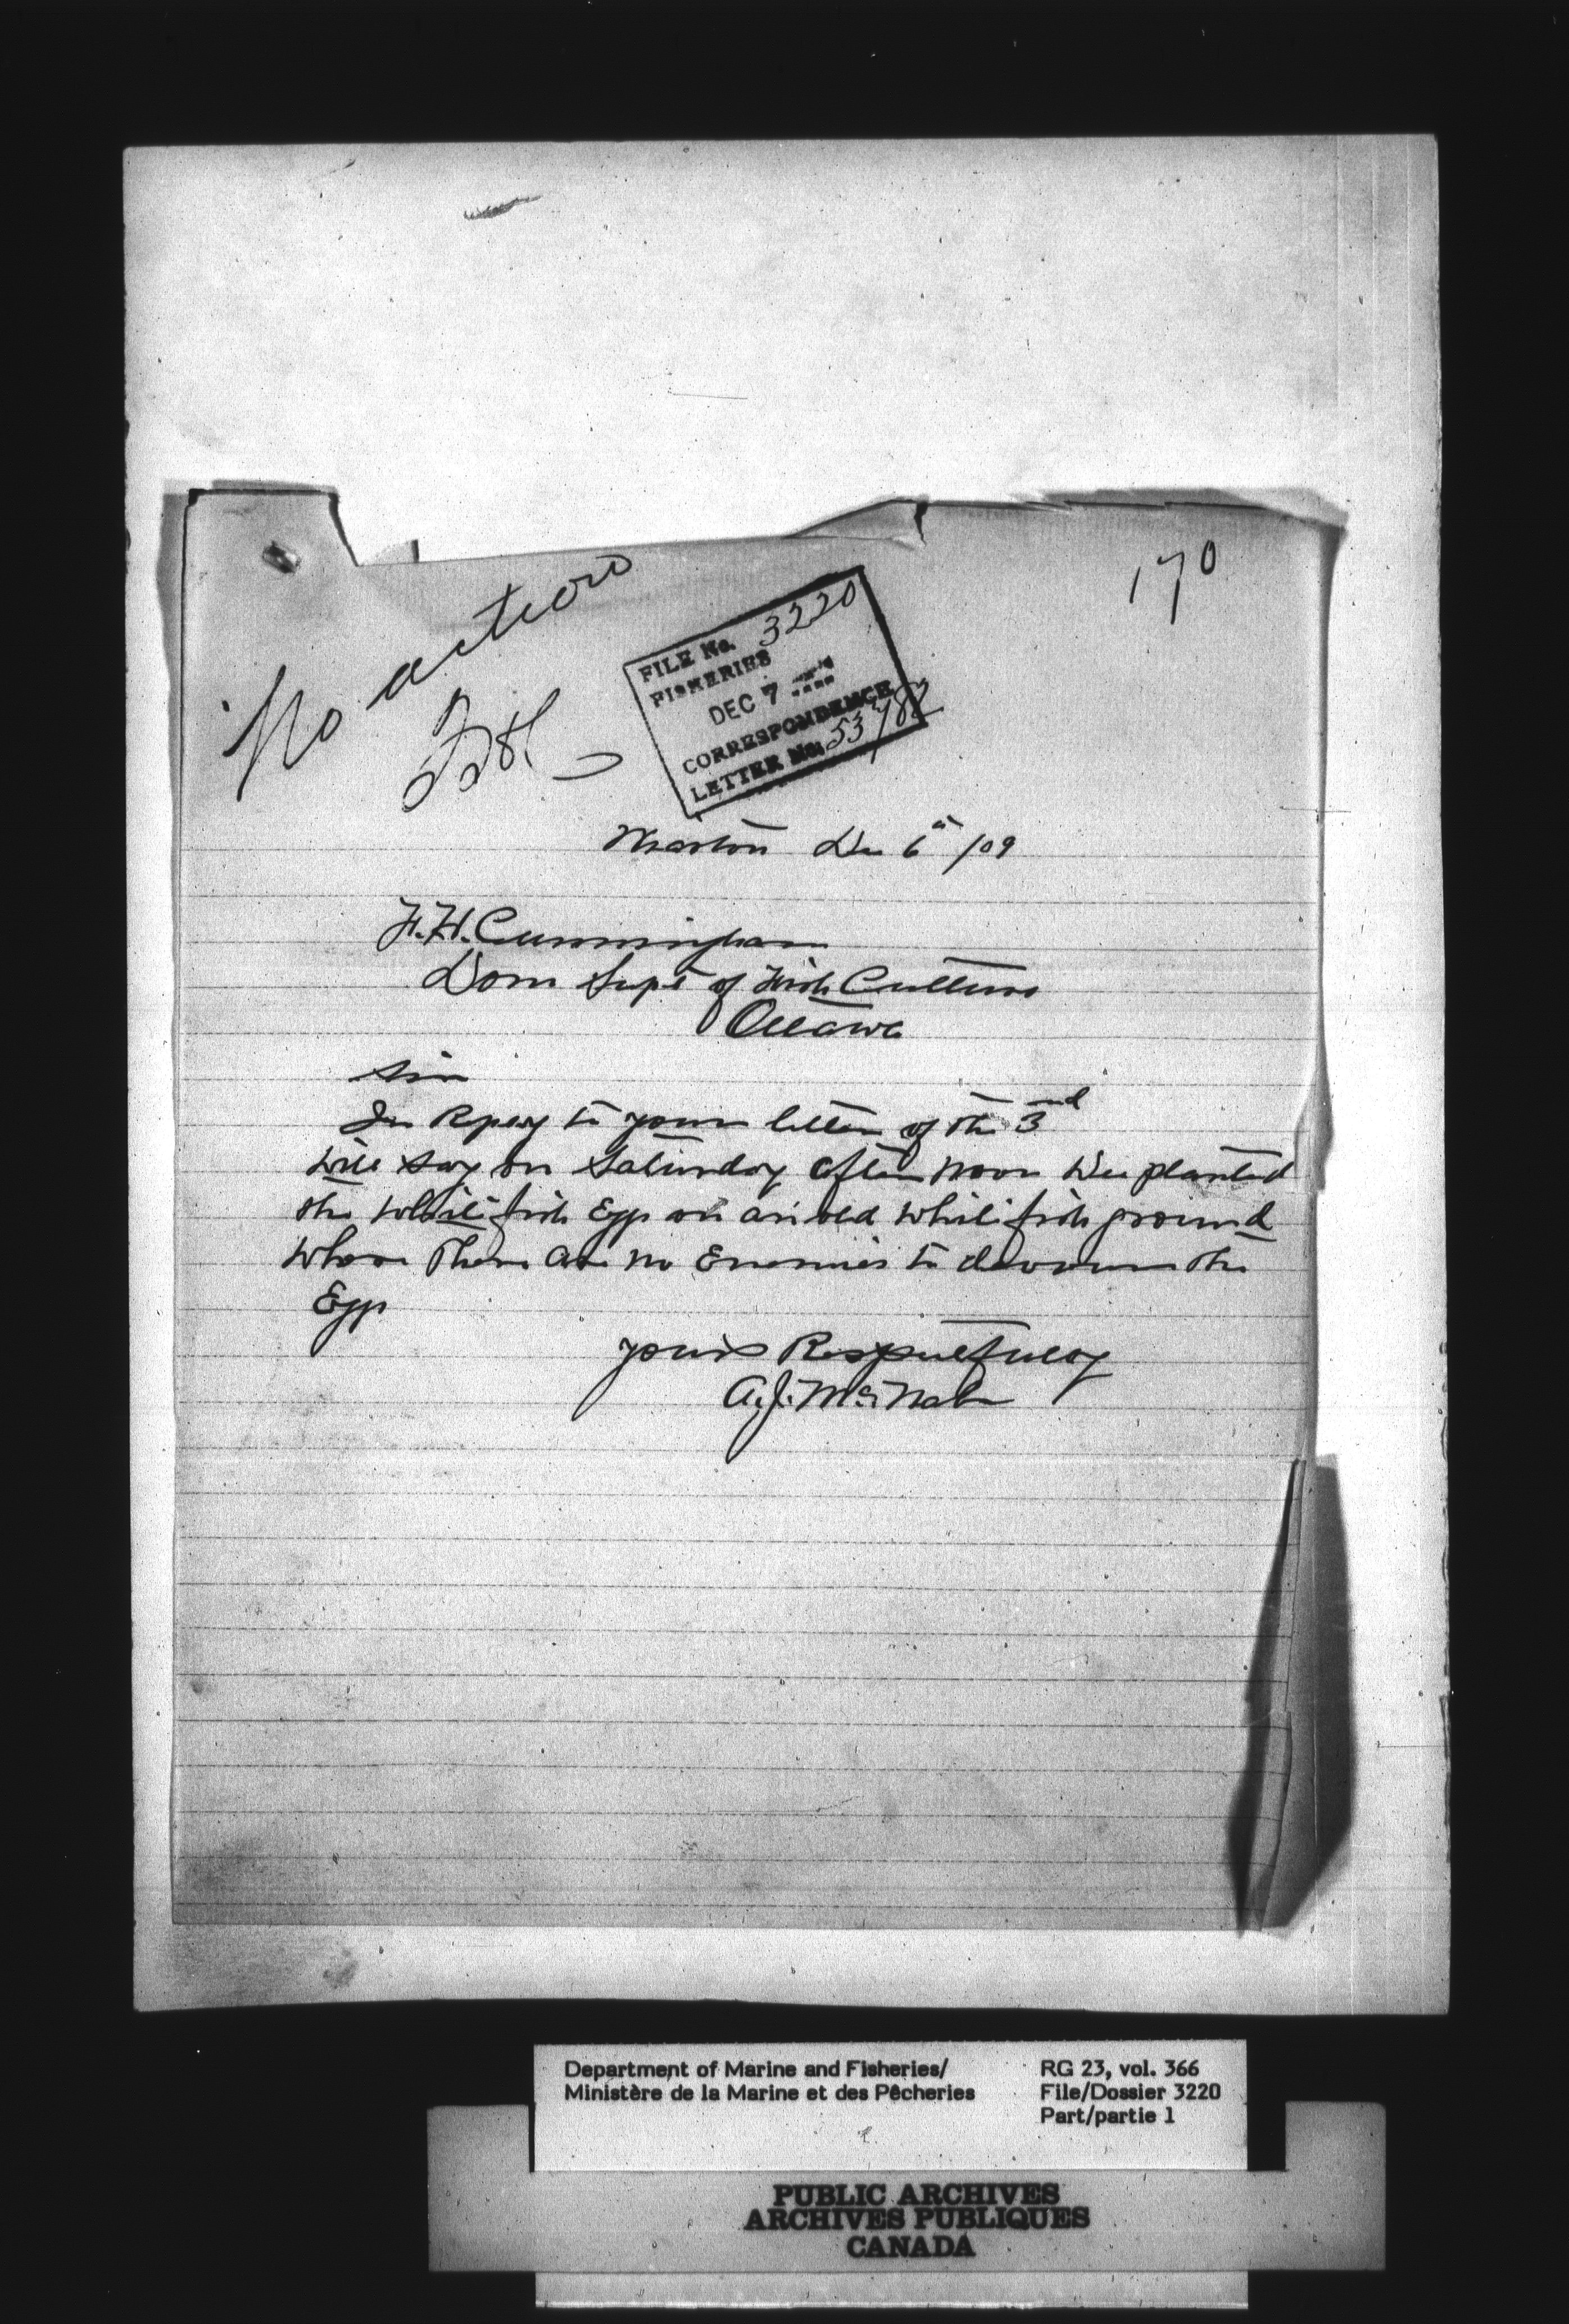 170
No action
FILE No. 3220
FISHERIES
DEC 7
CORRESPONDENCE
LETTER No. 53782
Wiarton Dec 6th /09
F.H. Cunningham
Dom Supt of Fish Culture
Ottawa
Sir
In Repay to your letter of the 3rd
will say on Saturday afternoon wee planted
the whitefish Eggs on an old whitefish ground
where there are no Enemies to devour the
Eggs
yours Respectfully
A.J. McNab
Department of Marine and Fisheries/
Ministère de la Marine et des Pêcheries
RG 23, vol. 366
File/Dossier 3220
Part/partie 1
PUBLIC ARCHIVES
ARCHIVES PUBLIQUES
CANADA